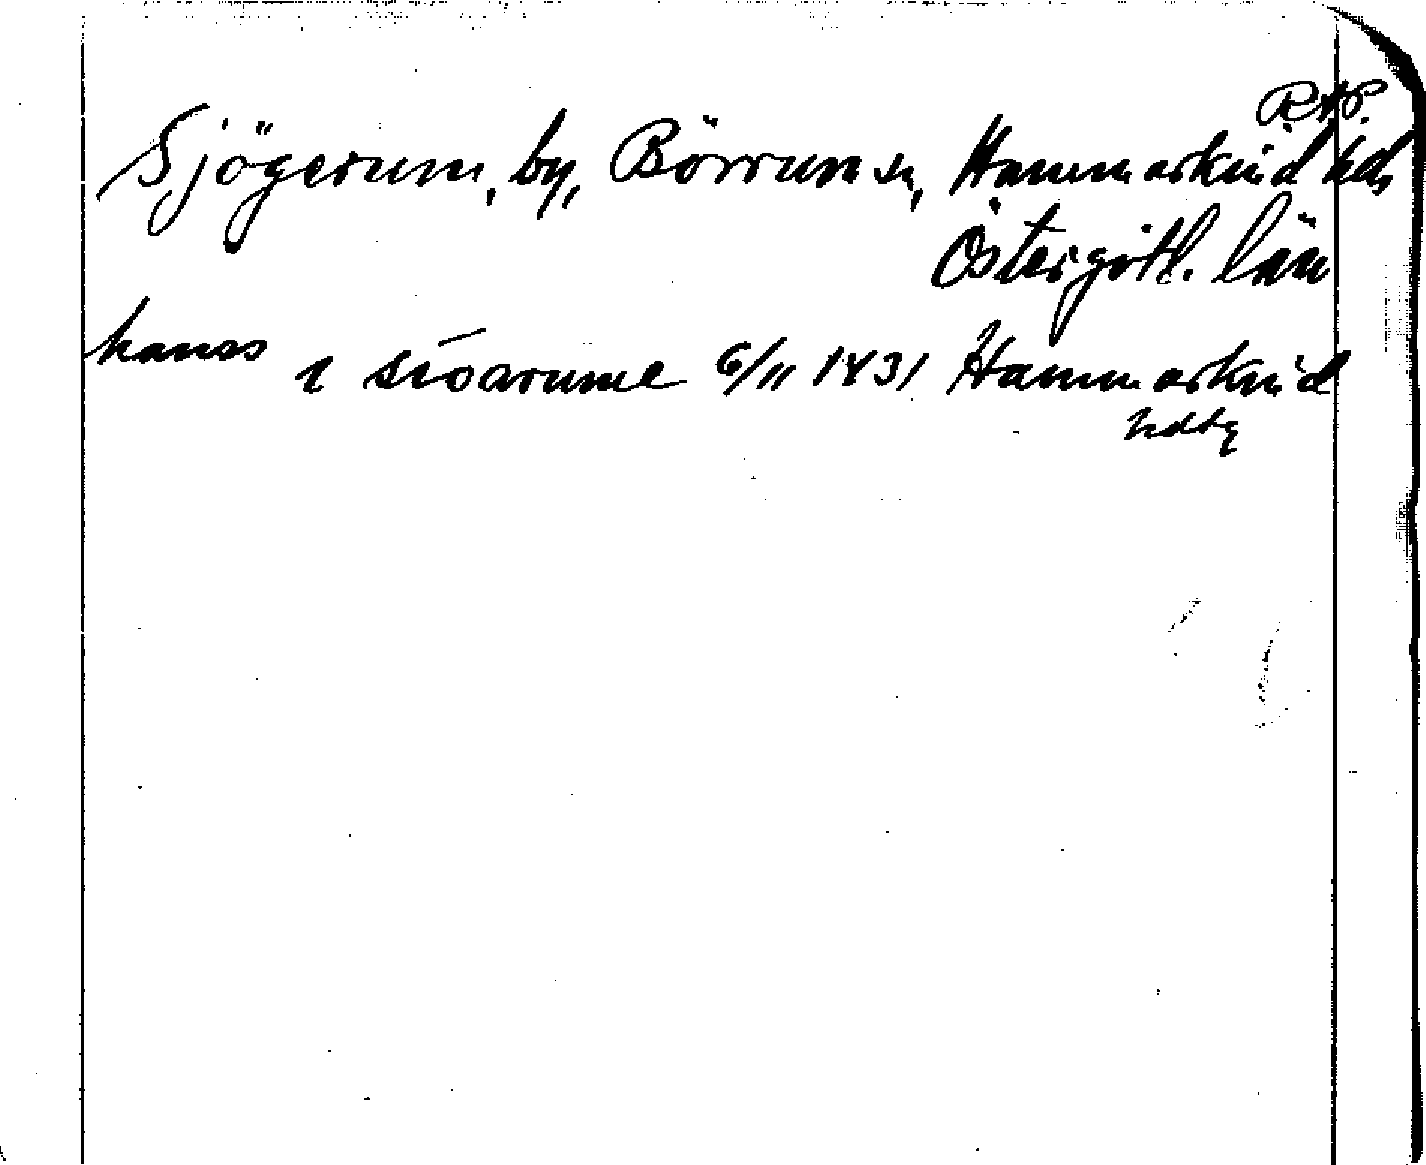 RAP.
Sjögerum, by, Börrum sn, Hammarkind hd,
Östergötl. län
hanss i sioarume 6/11 1431 Hammarkind
hdtg